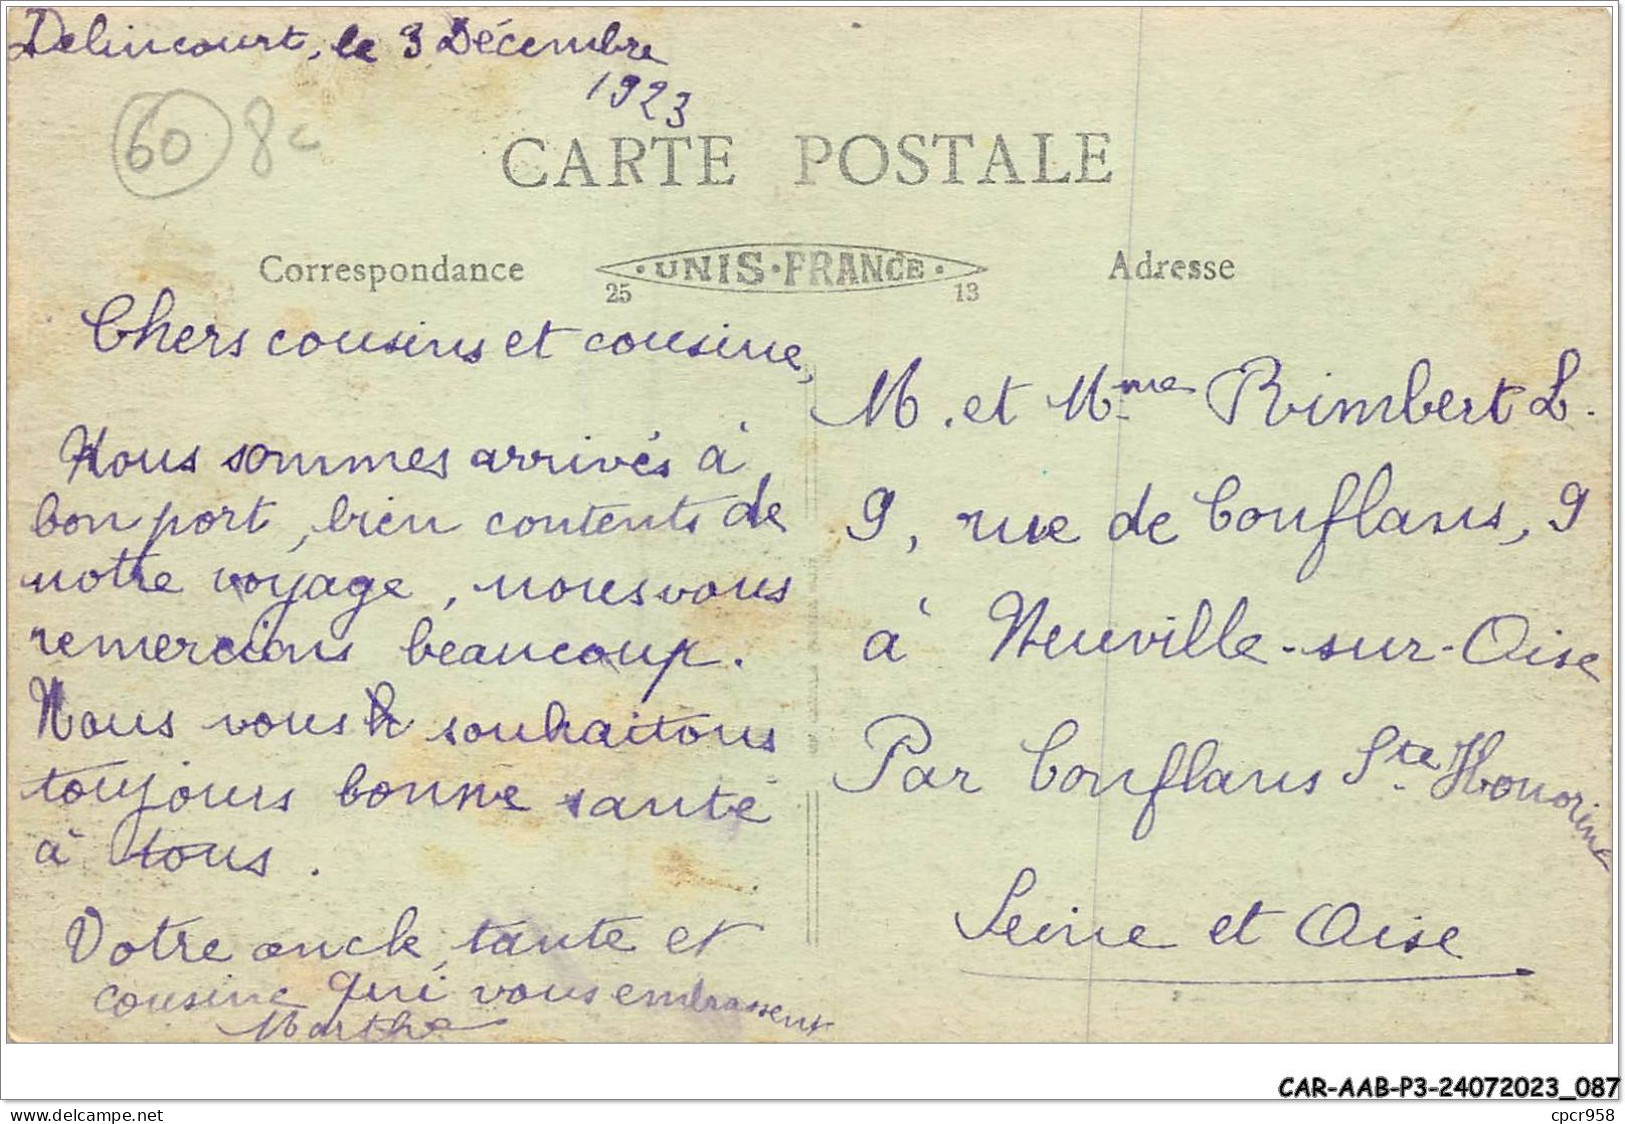 Delincourt, le 3 Décembre
1923
60 8c
CARTE POSTALE
Correspondance
UNIS-FRANCE
25 13
Adresse
Chers cousins et cousine,
Nous sommes arrivés à
bon port, bien contents de
notre voyage, nous vous
remercions beaucoup.
Nous vous souhaitons
toujours bonne santé
à tous.
Votre oncle, tante et
cousine qui vous embrassent
Marthe
M. et Mme Rimbert L.
9, rue de Conflans, 9
à Neuville-sur-Oise
Par Conflans Ste Honorine
Seine et Oise
CAR-AAB-P3-24072023_087
www.delcampe.net
cpcr958